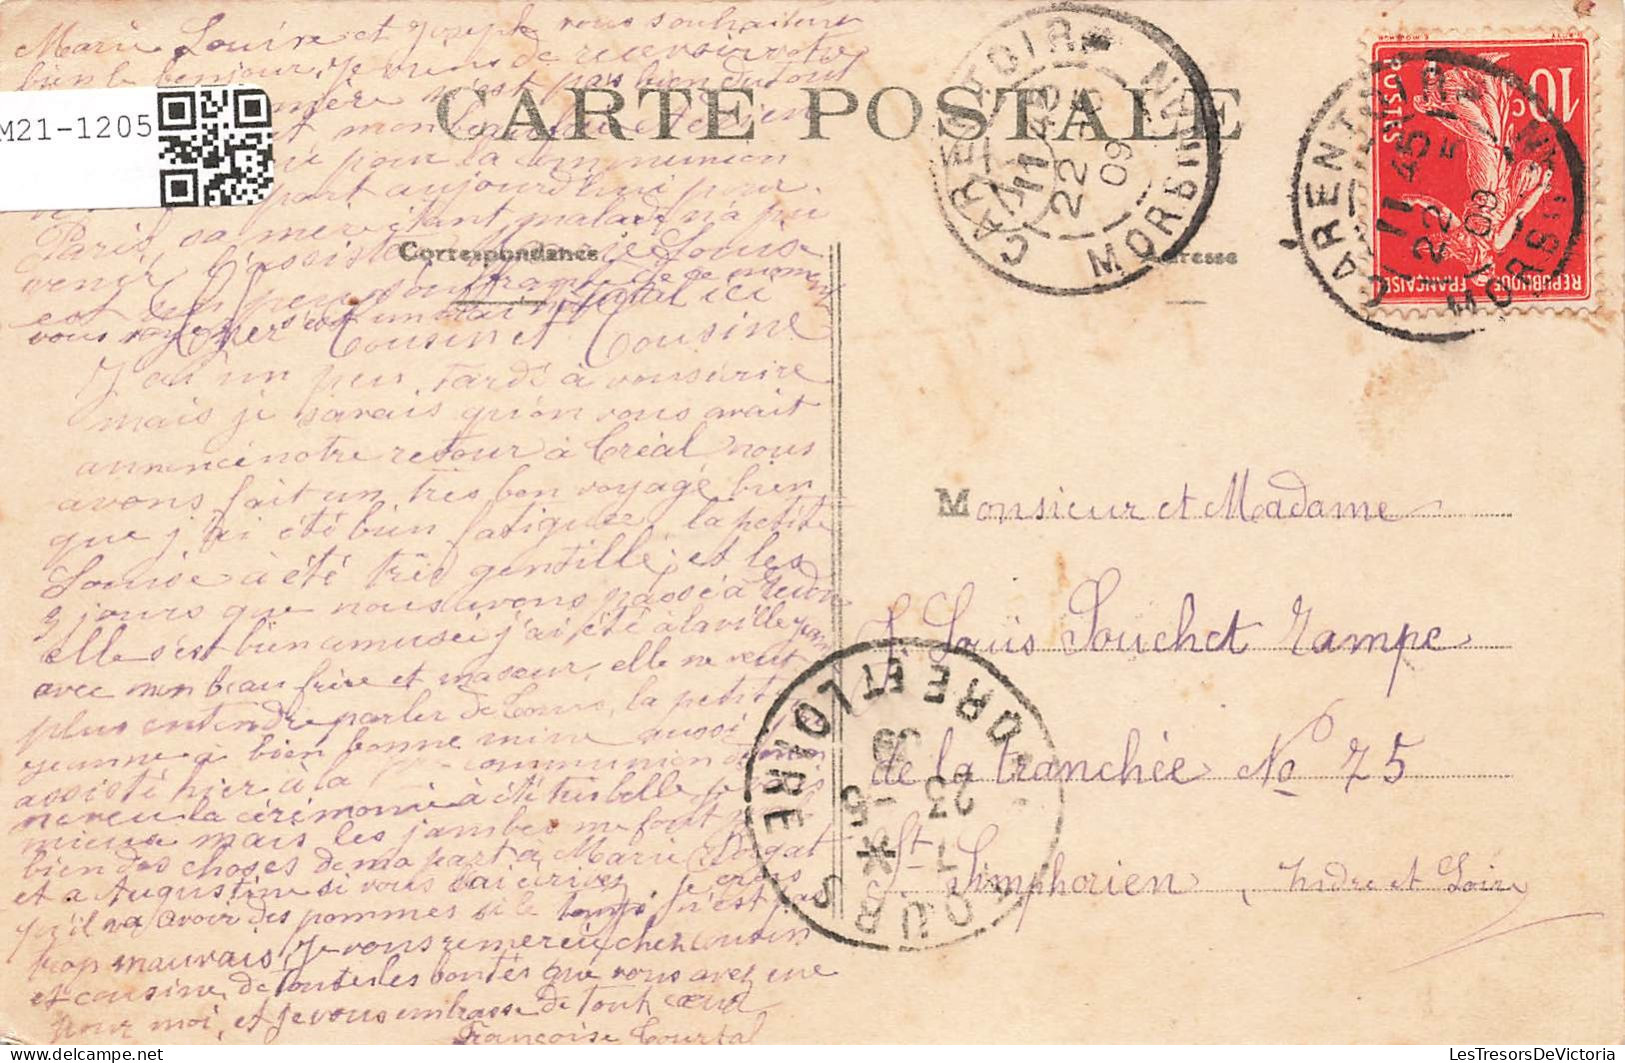 Marie Louise et Joseph vous souhaitent
bien le bonjour, je viens de recevoir votre
mère n'est pas bien du tout
M21-1205
CARTE POSTALE
pour la communion
part aujourd'hui pour
Paris, sa mère étant malade n'a pu
venir l'assister Louise
Correspondance
Adresse
est un peu souffrante de ce moment
vous voyez c'est un vrai hôpital ici
CARENTOIR
11 45
22 5
09
MORBIHAN
CARENTOIR
11 45
22 5
09
MORBIHAN
10c
POSTES
REPUBLIQUE FRANÇAISE
Cher Cousin et Cousine
J'ai un peu tardé à vous écrire
mais je savais qu'on vous avait
annoncé notre retour à Créal nous
avons fait un très bon voyage bien
que j'ai été bien fatiguée, la petite
Louise à été très gentille, et les
3 jours que nous avons passé à Redon
elle s'est bien amusée j'ai été à la ville
avec mon beau frère et ma sœur, elle ne veut
plus entendre parler de Tours, la petite
Jeanne a bien bonne mine aussi
assisté hier à la communion de mon
neveu la cérémonie à été très belle je
mieux mais les jambes me font
bien des choses de ma part à Marie
et a Augustine si vous lui écrivez, je crois
qu'il va avoir des pommes si le temps n'est pas
trop mauvais, Je vous remercie cher Cousin
et cousine, de toutes les bontés que vous avez eue
pour moi, et je vous embrasse de tout cœur
Françoise Courtal
Monsieur et Madame
Louis Souchet Rampe
de la tranchée No 75
St Simphorien, Indre et Loire
TOURS
INDRE ET LOIRE
23
5
09
LesTresorsDeVictoria